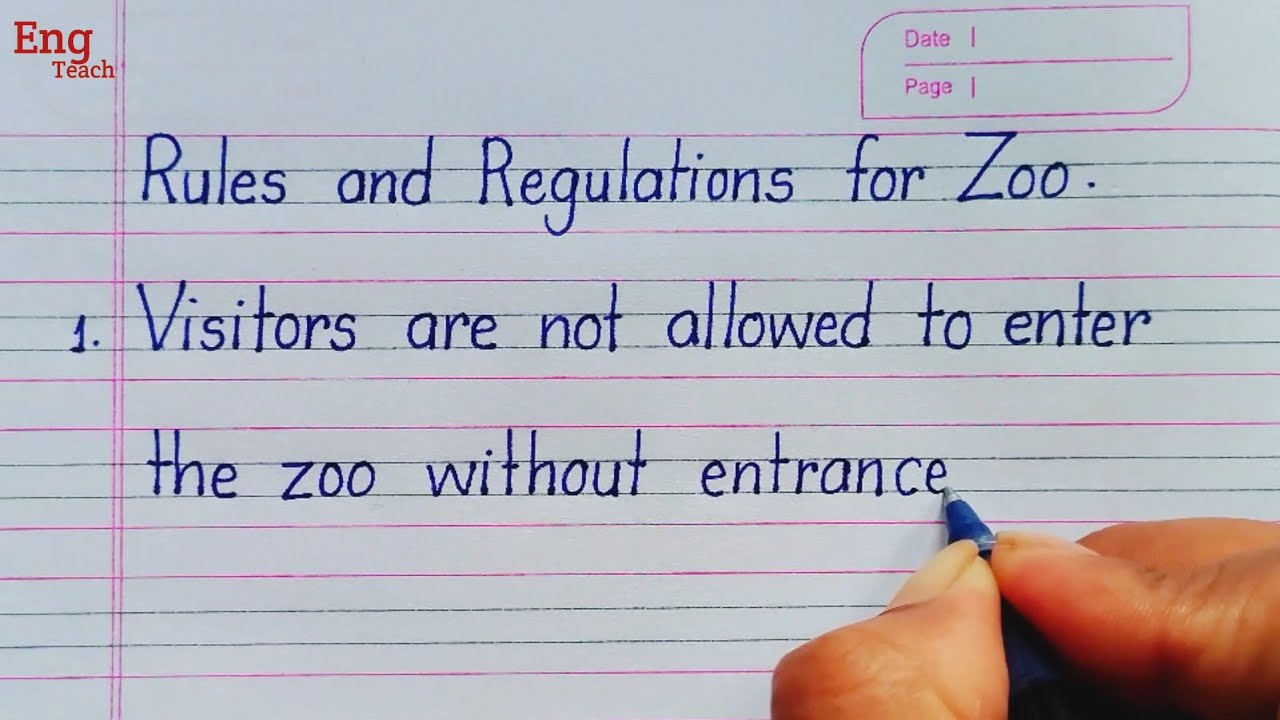 Eng
Teach
Date |
Page |
Rules and Regulations for Zoo.
1. Visitors are not allowed to enter
the zoo without entrance